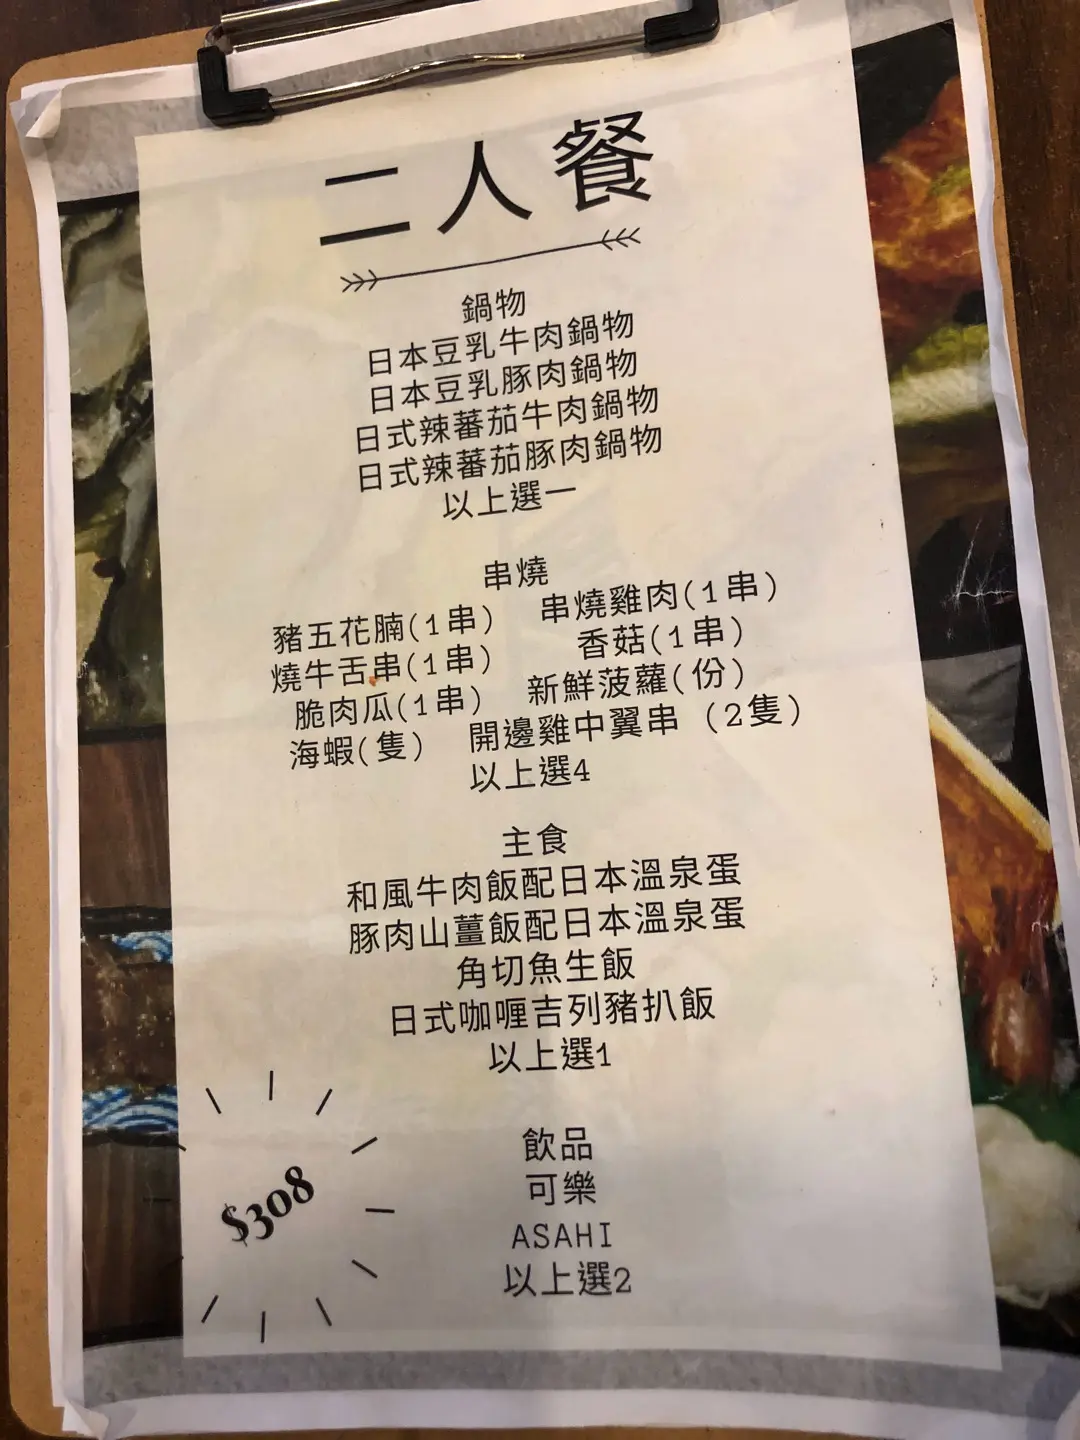 二人餐
鍋物
日本豆乳牛肉鍋物
日本豆乳豚肉鍋物
日式辣蕃茄牛肉鍋物
日式辣蕃茄豚肉鍋物
以上選一
串燒
豬五花腩(1串) 串燒雞肉(1串)
燒牛舌串(1串) 香菇(1串)
脆肉瓜(1串) 新鮮菠蘿(份)
海蝦(隻) 開邊雞中翼串 (2隻)
以上選4
主食
和風牛肉飯配日本溫泉蛋
豚肉山薑飯配日本溫泉蛋
角切魚生飯
日式咖喱吉列豬扒飯
以上選1
飲品
可樂
ASAHI
以上選2
$308